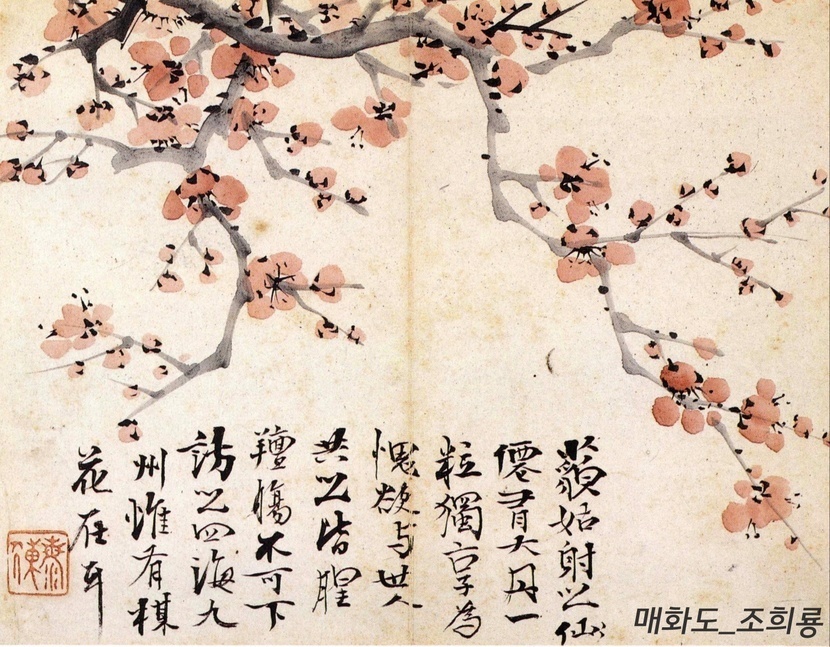 藐姑射之仙
僊有大丹一
粒獨享為
愧欲与世人
共之皆腥
羶腸不可下
訪之四海九
州惟有楳
花在耳
매화도_조희룡